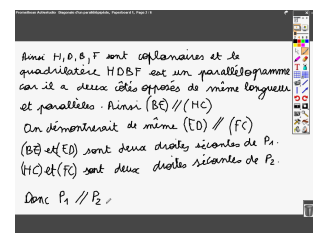 Promethean ActivInspire - Diagonale d'un parallélépipède, Paperboard 1, Page 5 - 6
Ainsi H, D, B, F sont coplanaires et le
quadrilatère HDBF est un parallélogramme
car il a deux côtés opposés de même longueur
et parallèles. Ainsi (BE) // (HC)
On démontrerait de même (ED) // (FC)
(BE) et (ED) sont deux droites sécantes de P1.
(HC) et (FC) sont deux droites sécantes de P2.
Donc P1 // P2